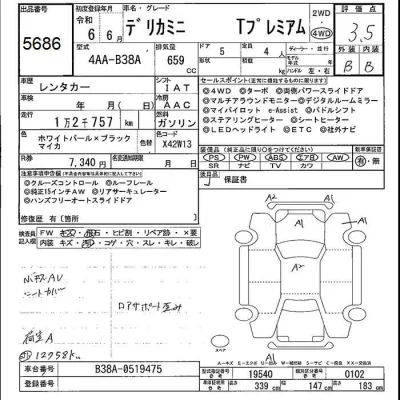 出品番号 初度登録年月 車名・グレード 2WD 評価点
5686 令和 6年 6月 デリカミニ Tプレミアム 4WD 3.5
型式 排気量 ドア 定員 外装 内装
4AA-B38A 659cc 5 4人 B B
車歴 シフト セールスポイント
レンタカー IAT ◎4WD ◎ターボ ◎両側パワースライドドア
走行 冷房 ◎マルチアラウンドモニター◎デジタルルームミラー
1万2千757 AAC ◎マイパイロット ◎e-Assist ◎パドルシフト
燃料 ◎ステアリングヒーター ◎シートヒーター
ガソリン ◎LEDヘッドライト ◎ETC ◎社外ナビ
ホワイトパール×ブラックマイカ X42W13
R券 7,340円 名義変更期限
装備 PS PW ABS エアB AW 有・無
SR ナビ TV カワ
保証書
注意事項
◎クルーズコントロール ◎ルーフレール
◎純正15インチAW ◎リアサーキュレーター
◎ハンズフリーオートスライドドア
修復歴 有【箇所 】
検査員記入欄 FW キズ・飛石・ヒビ割・リペア跡・×要
内装 キズ・汚れ・コゲ・穴・スレ・キレ・破レ
A2 A1
A1
A1
荷室A
12758km
スペア
車台番号 B38A-0519475
登録番号
型式指定番号 19540 類別区分番号 0102
長さ 339cm 幅 147cm 高さ 183cm